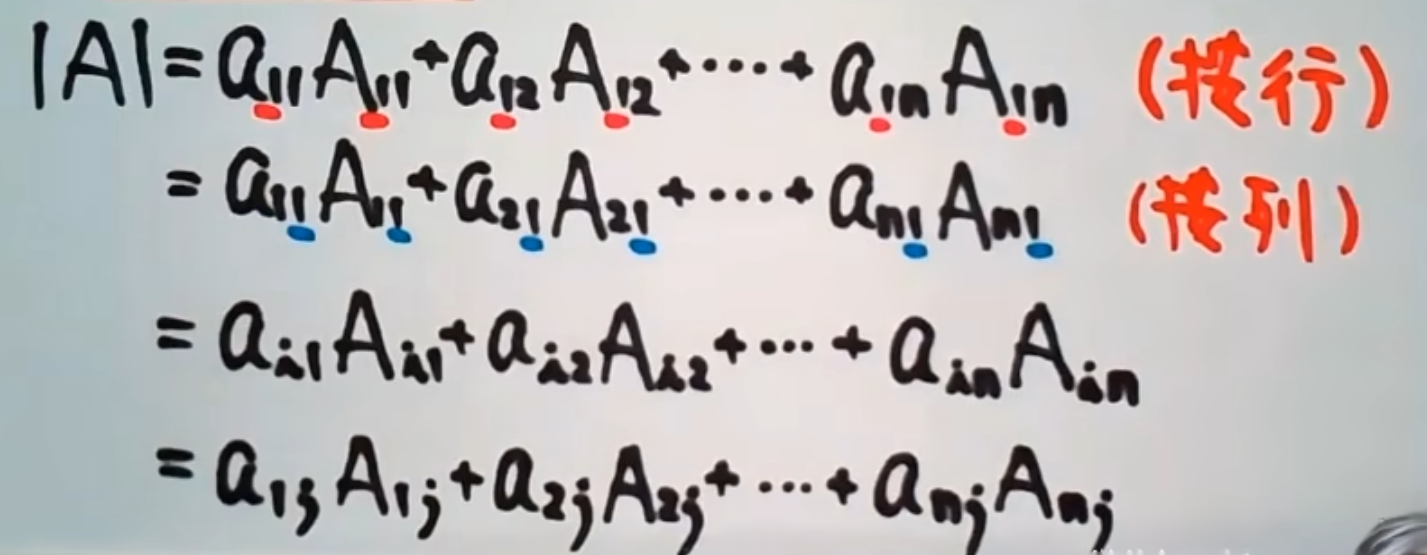 |A|=a₁₁A₁₁+a₁₂A₁₂+⋯+a₁ₙA₁ₙ (按行)
=a₁₁A₁₁+a₂₁A₂₁+⋯+aₙ₁Aₙ₁ (按列)
=aᵢ₁Aᵢ₁+aᵢ₂Aᵢ₂+⋯+aᵢₙAᵢₙ
=a₁ⱼA₁ⱼ+a₂ⱼA₂ⱼ+⋯+aₙⱼAₙⱼ